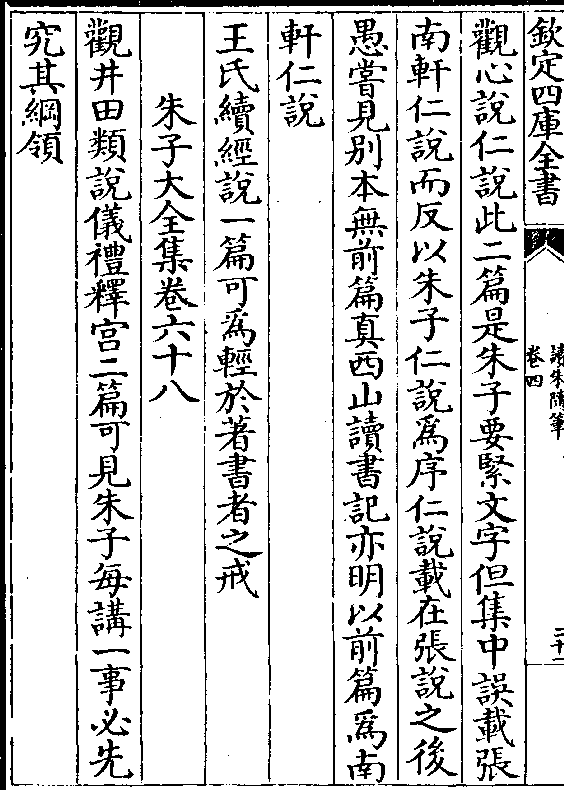 欽定四庫全書
讀朱隨筆
卷四
觀心說仁說此二篇是朱子要緊文字但集中誤載張
南軒仁說而反以朱子仁說為序仁說載在張說之後
愚嘗見別本無前篇真西山讀書記亦明以前篇為南
軒仁說
王氏續經說一篇可為輕於著書者之戒
朱子大全集卷六十八
觀井田類說儀禮釋宫二篇可見朱子每講一事必先
究其綱領